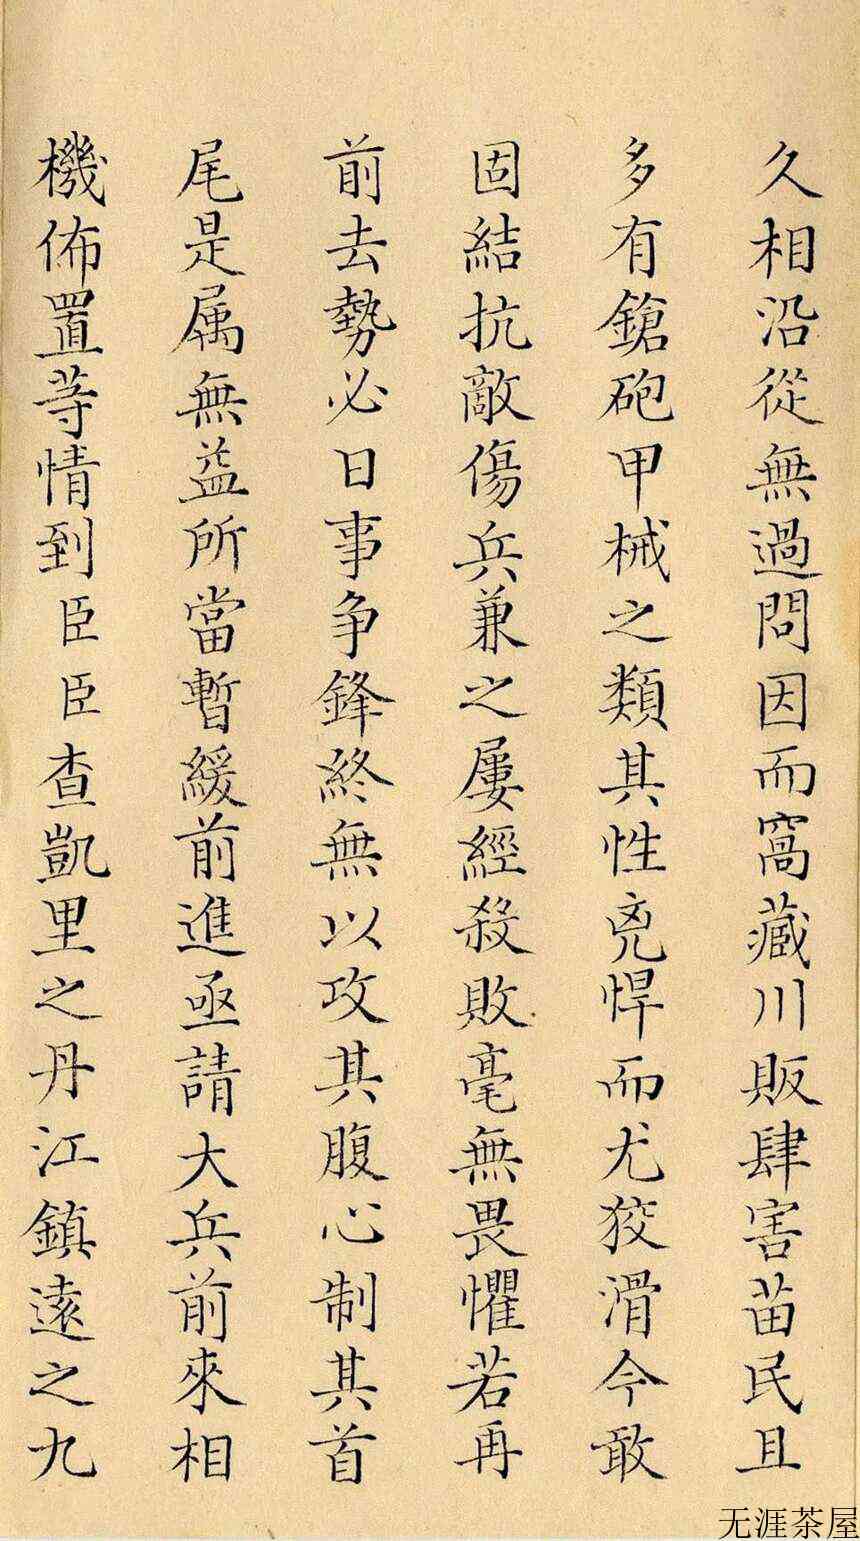 久相沿從無過問因而窩藏川販肆害苗民且
多有鎗砲甲械之類其性兇悍而尤狡滑今敢
固結抗敵傷兵兼之屢經殺敗毫無畏懼若再
前去勢必日事争鋒終無以攻其腹心制其首
尾是属無益所當暫緩前進亟請大兵前來相
機佈置等情到臣臣查凱里之丹江鎮遠之九
无涯茶屋